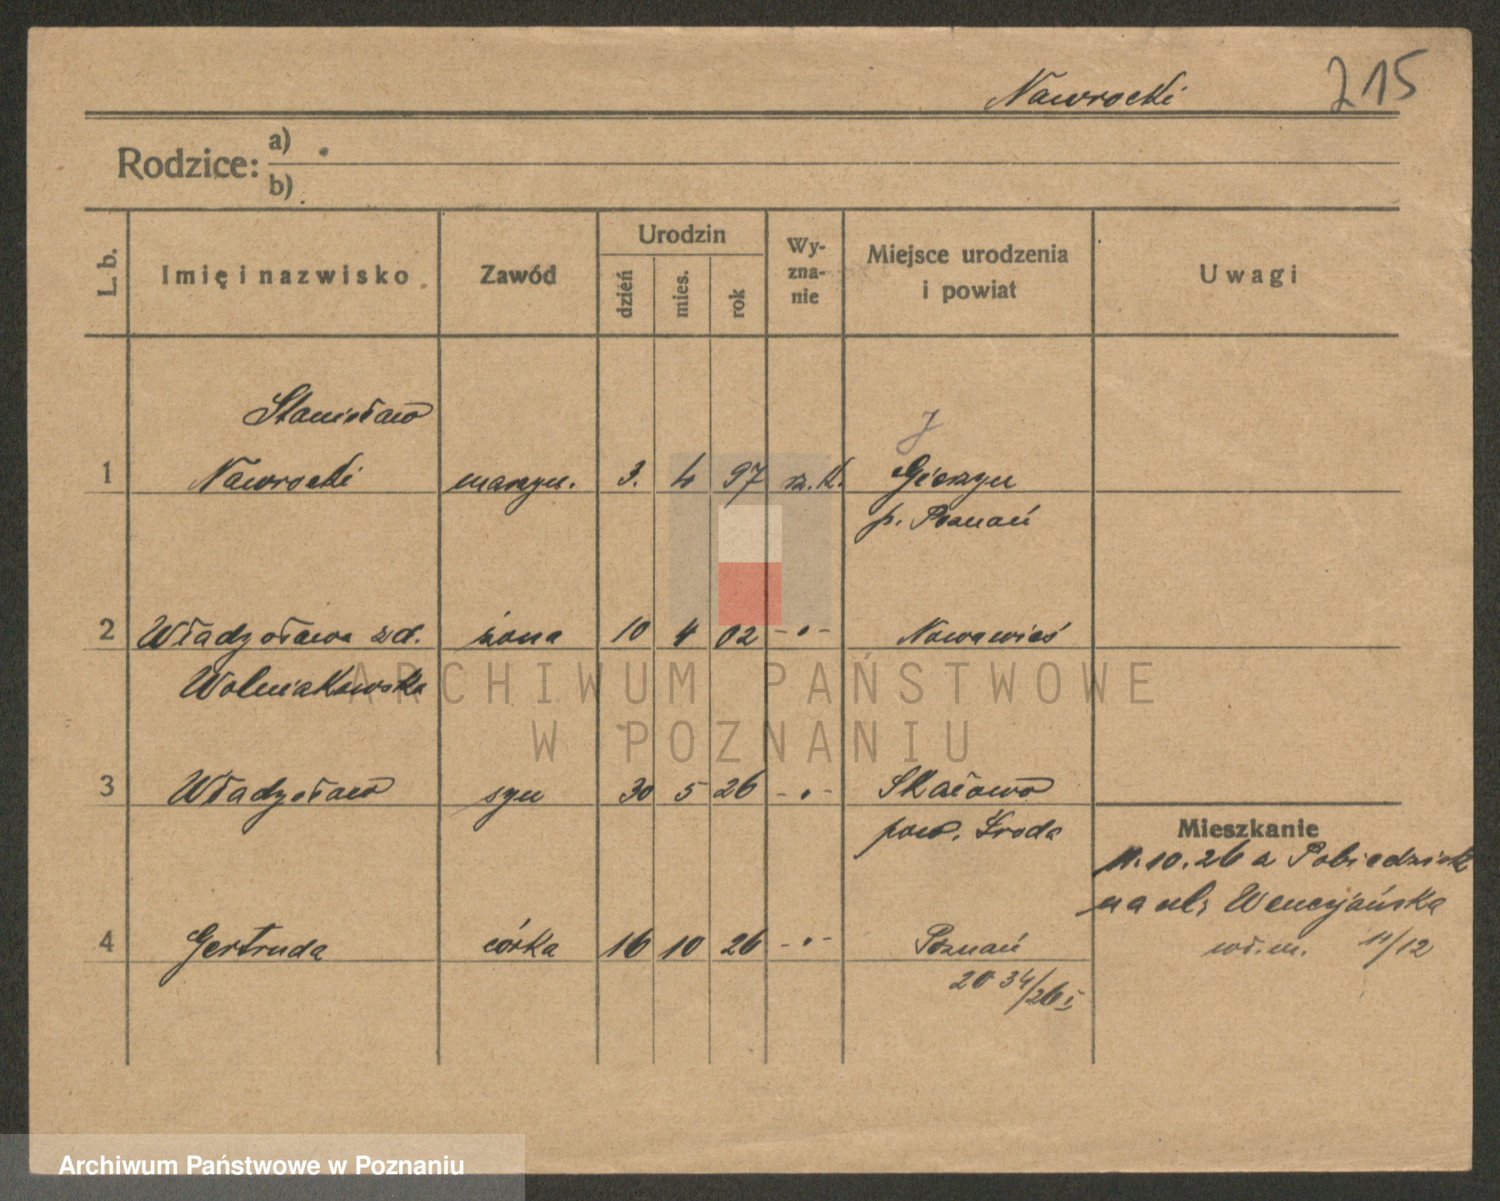 Nawrocki 215
Rodzice: a)
b)
L. b. Imię i nazwisko Zawód Urodzin dzień mies. rok Wyznanie Miejsce urodzenia i powiat Uwagi
Stanisław
1 Nawrocki maszyn. 3. 4 97 rz. k. Gieczyn
p. Poznań
2 Władysława zd. żona 10 4 02 - " - Nowawieś
Wolniakowska
3 Władysław syn 30 5 26 - " - Skałowo
pow. Środa
Mieszkanie
11.10.26 a Pobiedzisk
na ul. Wenecjańska
wł. m. 11/12
4 Gertruda córka 16 10 26 - " - Poznań
2034/26 I
ARCHIWUM PAŃSTWOWE
W POZNANIU
Archiwum Państwowe w Poznaniu